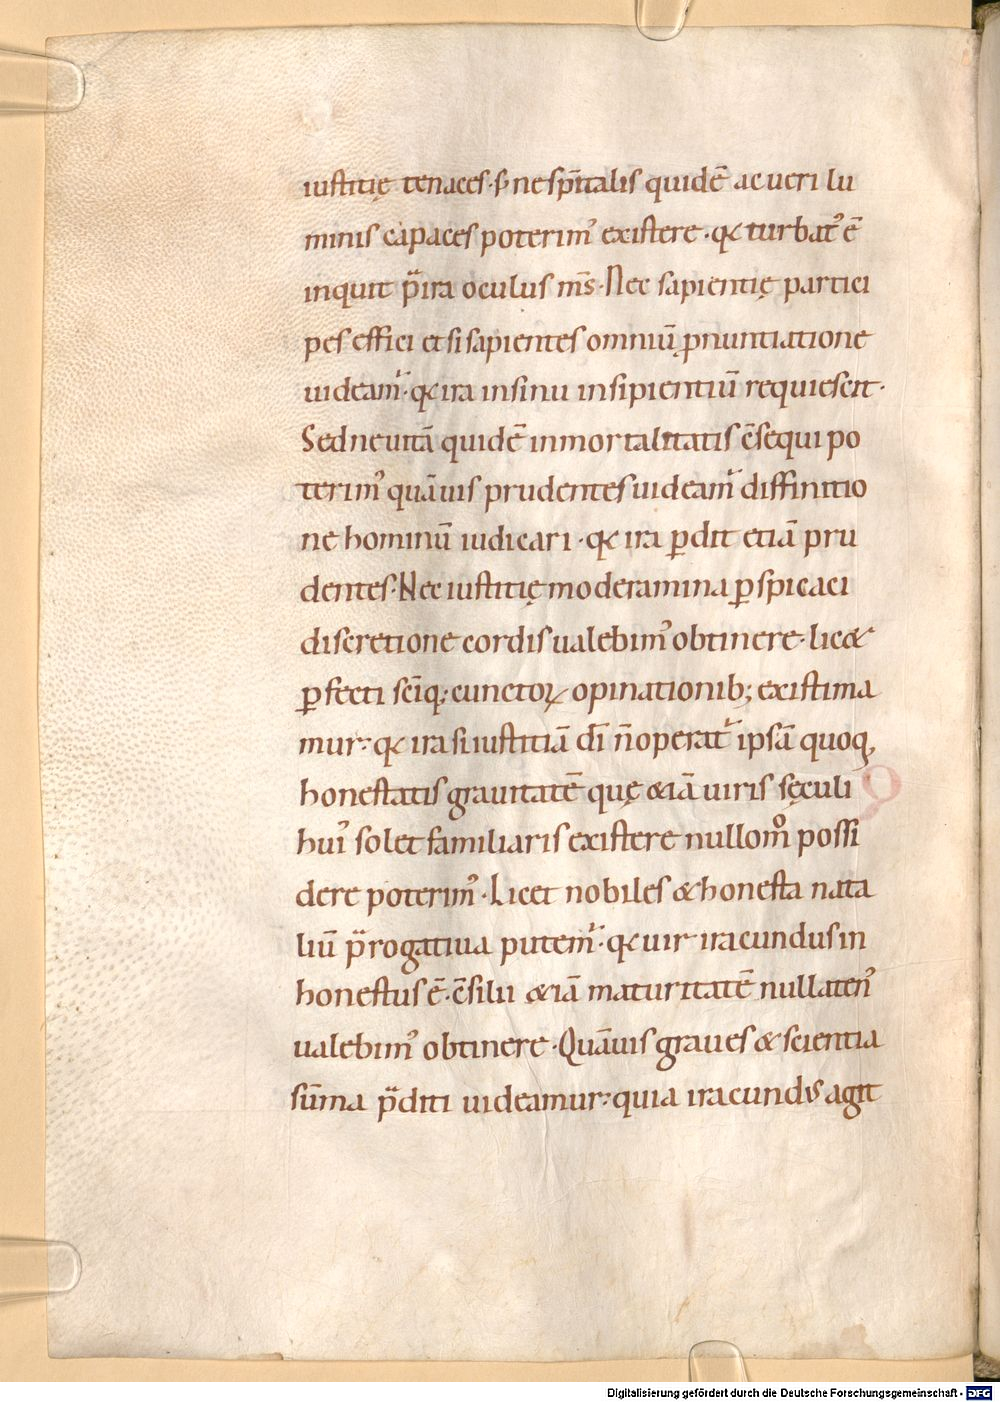 iustitię tenaces· s̄ ne sp̄italis quidē ac ueri lu
minis capaces poterim᾽ existere · q&#42801; turbat᾽ ē
inquit p̄ ira oculus m̄s· Nec sapientię partici
pes effici et si sapientes omniū ꝓnuntiatione
uideam᷑· q&#42801; ira in sinu insipientiū requiescit·
Sed ne uitā quidē inmortalitatis c̄sequi po
terim᾽ quāuis prudentes uideam᷑ diffinitio
ne hominū iudicari · q&#42801; ira ꝑdit etiā pru
dentes· Nec iustitię moderamina ꝑspicaci
discretione cordis ualebim᾽ obtinere· lic&
ꝑfecti sc̄iq; cunctoꝝ opinationib; existima
mur· q&#42801; ira uiri iustitiā dī n̄ operat᷑ ipsā quoq,
honestatis grauitatē quę &iā uiris sęculi
hui᾽ solet familiaris existere nullom̊ possi
dere poterim᾽· Licet nobiles & honesta nata
liū p̄rogatiua putem᷑· q&#42801; uir iracundus in
honestus ē· c̄silii &iā maturitatē nullaten᾽
ualebim᾽ obtinere· Quāuis graues & scientia
sūma p̄diti uideamur· quia iracundus agit
Digitalisierung gefördert durch die Deutsche Forschungsgemeinschaft - DFG